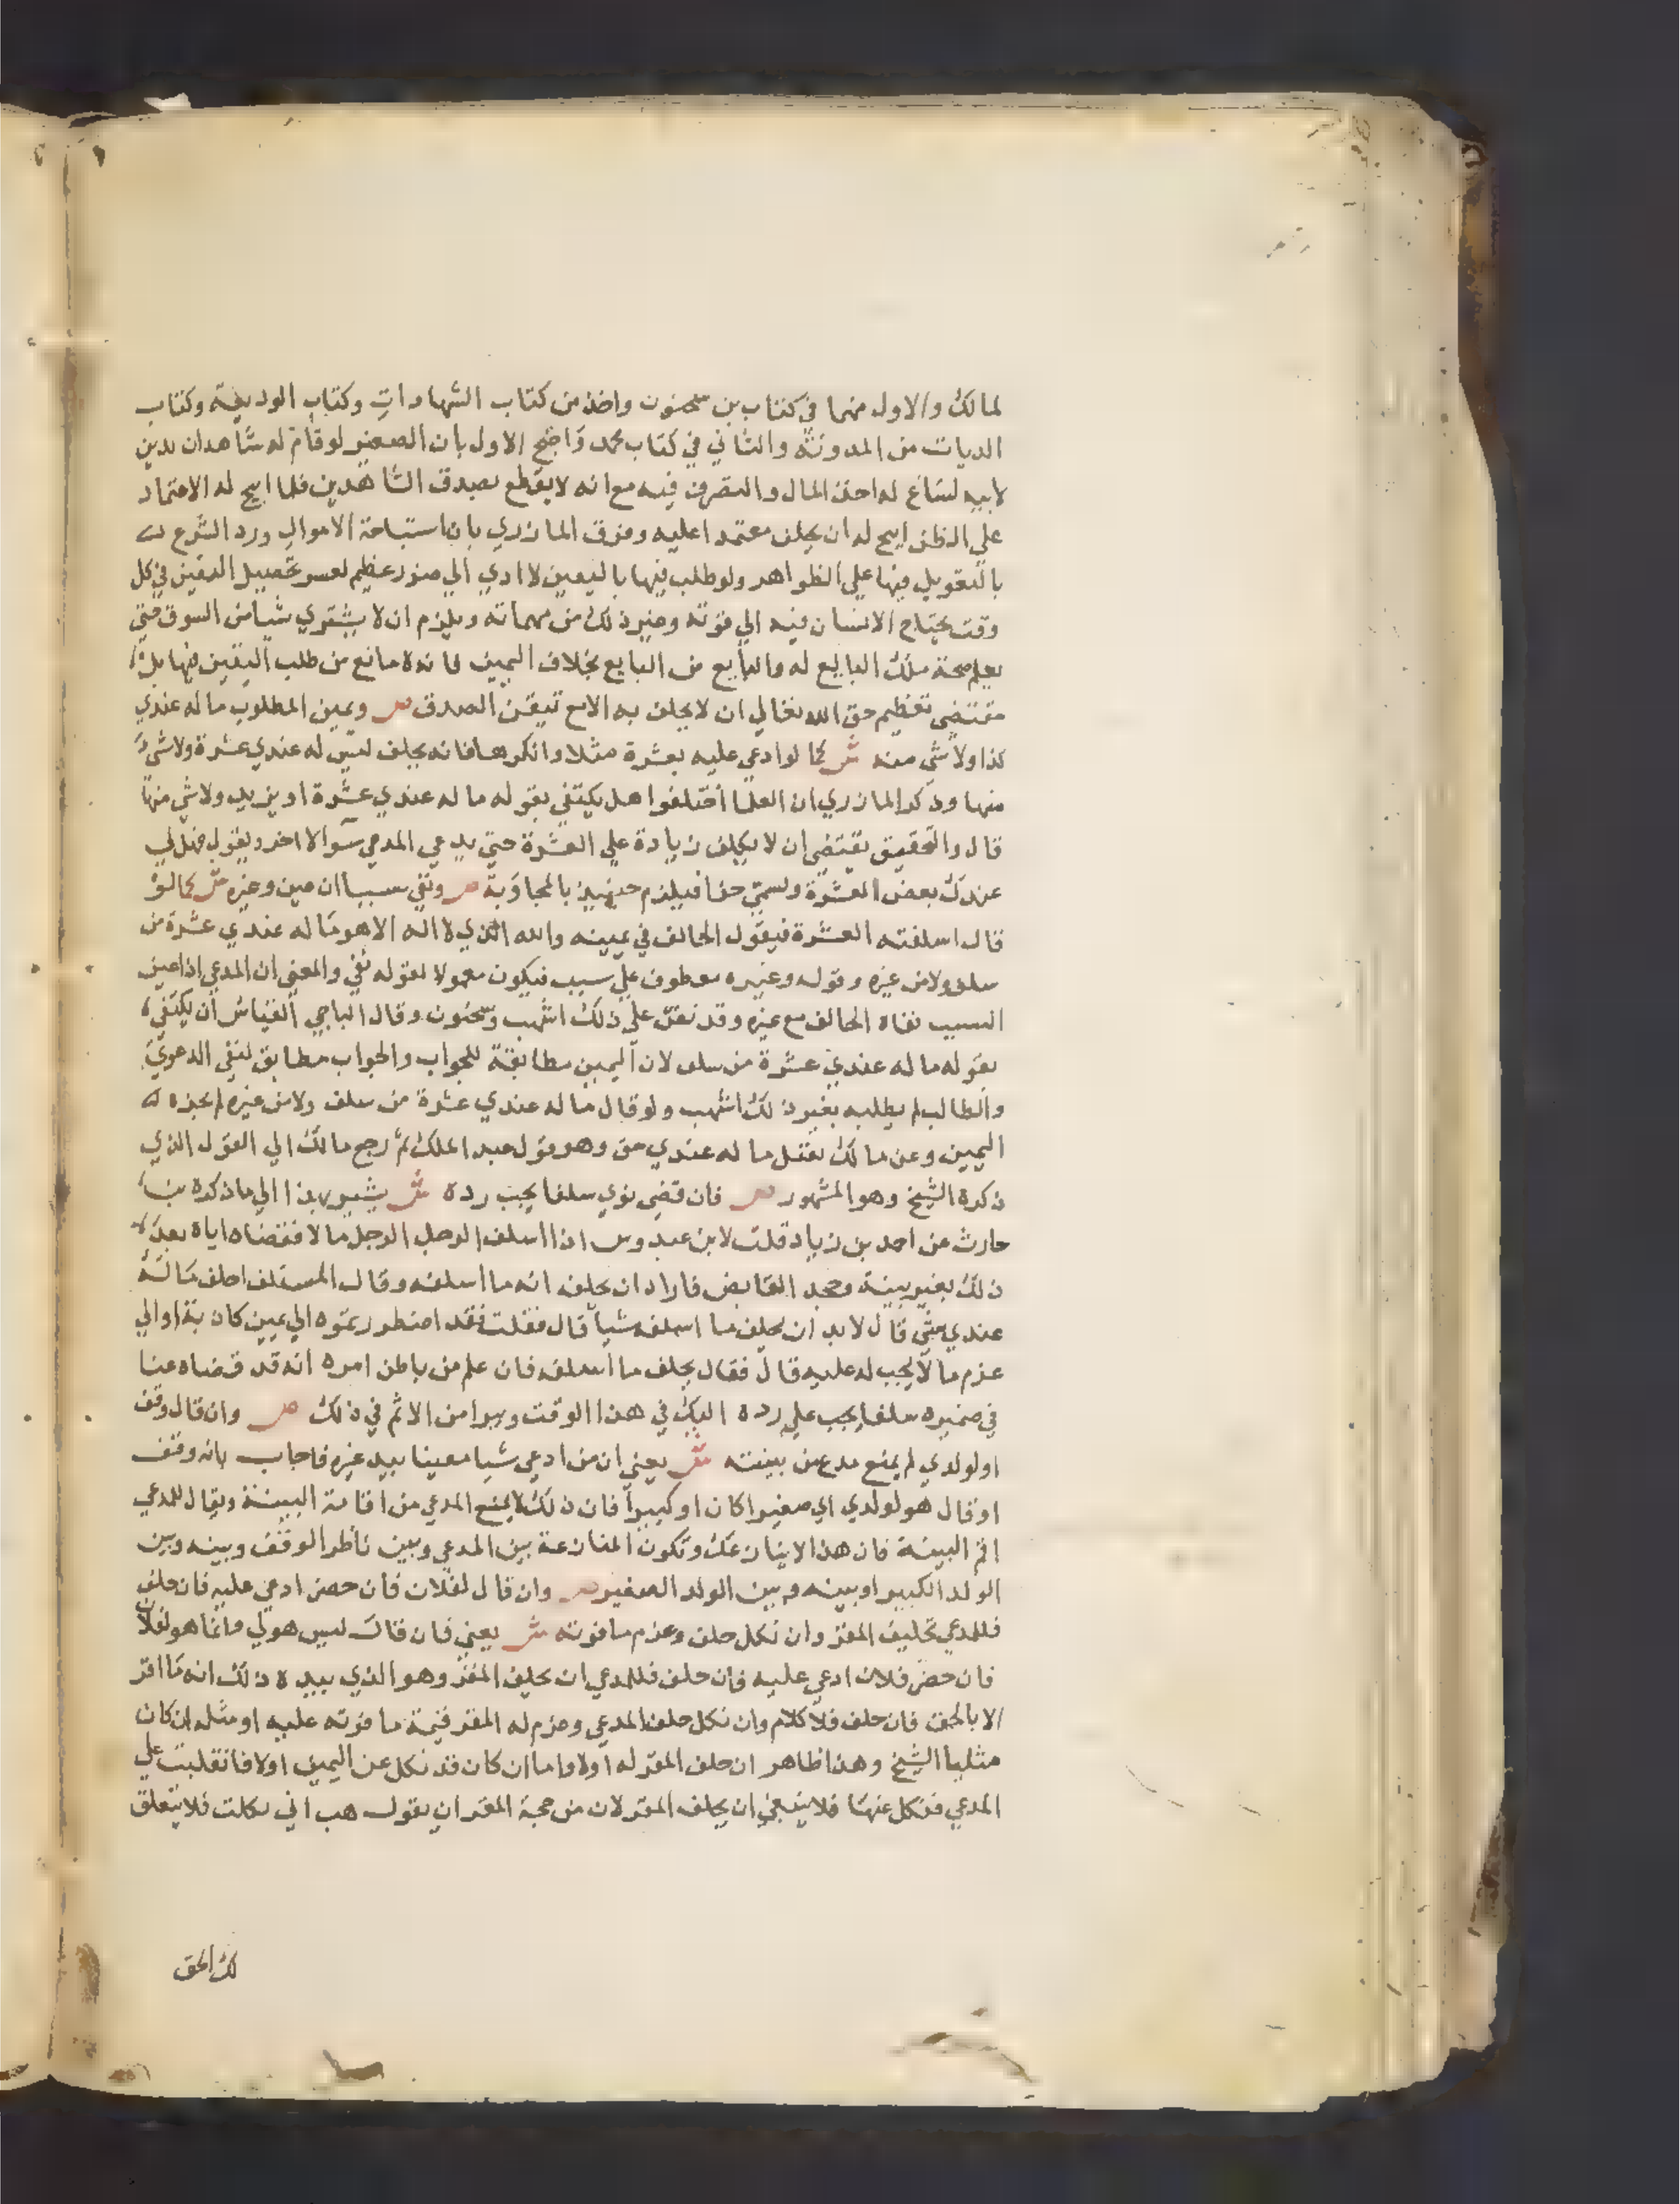 لمالك والاول منهما في كتاب بن سحنون واخذ من كتاب الشهادات وكتاب الوديعة وكتاب
الديات من المدونة والثاني في كتاب محمد واحتج الاول بان الصغير لو قام له شاهدان بدين
لابيه لساغ له اخذ المال والتصرف فيه مع انه لا يقطع بصدق الشاهدين فلما ابيح له الاعتماد
علي الظن ابيح له ان يحلف معتمدا عليه وفرق المازري بان استباحة الاموال ورد الشرع
بالتعويل فيها علي الظواهر ولو طلب فيها باليقين لادي الي ضرر عظيم لعسر تحصيل اليقين في كل
وقت يحتاج الانسان فيه الي قوته وغير ذلك من مهماته ويلزم ان لا يشتري شيا من السوق حتي
يعلم صحة ملك البايع له والبايع من البايع بخلاف اليمين فانه لا مانع من طلب اليقين فيها بل
مقتضي تعظيم حق الله تعالي ان لا يحلف به الا مع تيقن الصدق ص ويمين المطلوب ما له عندي
كذا ولا شي منه ش كما لو ادعي عليه بعشرة مثلا وانكرها فانه يحلف ليس له عندي عشرة ولا شي
منها وذكر المازري ان العلما اختلفوا هل يكتفي بقوله ما له عندي عشرة او يزيد ولا شي منها
قال والتحقيق يقتضي ان لا يحلف زيادة علي العشرة حتي يدعي المدعي سوالا اخر ويقول فهل لي
عندك بعض العشرة ولسمي حقا فيلزم حينيذ بالمجاوبة ص ونفي سببا ان عين وغيره ش كما لو
قال اسلفته العشرة فيقول الحالف في يمينه والله الذي لا اله الا هو ما له عندي عشرة من
سلف ولا من غيره وقوله وغيره معطوف علي سبب فيكون معمولا لقوله نفي والمعني ان المدعي اذا عين
السبب نفاه الحالف مع غيره وقد نص علي ذلك اشهب وسحنون وقال الباجي القياس ان يكتفي
بقوله ما له عندي عشرة من سلف لان اليمين مطابقة للجواب والجواب مطابق لنفي الدعوي
والطالب لم يطلبه بغير ذلك اشهب ولو قال ما له عندي عشرة من سلف ولا من غيره لم يجزه
اليمين وعن مالك يقبل ما له عندي حق وهو قول عبد الملك ثم رجع مالك الي القول الذي
ذكره الشيخ وهو المشهور ص فان قضي نوي سلفا يجب رده ش يشير بهذا الي ما ذكره بن
حارث عن احمد بن زياد قلت لابن عبدوس اذا اسلف الرجل الرجل مالا فقضاه اياه بعد
ذلك بغير بينة وجحد القابض فاراد ان يحلف انه ما اسلفه وقال المستلف احلف ما له
عندي شي قال لا بد ان يحلف ما اسلفه شيا قال فقلت فقد اضطررتموه الي يمين كاذبة او الي
غرم ما لا يجب له عليه قال فقال يحلف ما اسلفه فان علم من باطن امره انه قد قضاه عنا
في ضميره سلفا يجب علي رده اليك في هذا الوقت وبرا من الاثم في ذلك ص وان قال وقف
او لولدي لم يمنع مدع من بينته ش يعني ان من ادعي شيا معينا بيد غيره فاجاب بانه وقف
او قال هو لولدي اي صغيرا كان او كبيرا فان ذلك لا يمنع المدعي من اقامة البينة ويقال للمدعي
اقم البينة فان هذا لا ينازعك وتكون المنازعة بين المدعي وبين ناظر الوقف وبينه وبين
الولد الكبير او بينه وبين الولد الصغير ص وان قال لفلان فان حضر ادعي عليه فان حلف
فللمدعي تحليف المقر وان نكل حلف وغرم ما فوته ش يعني فان قال ليس هو لي وانما هو لفلان
فان حضر فلان ادعي عليه فان حلف فللمدعي ان يحلف المقر وهو الذي بيده ذلك انه ما اقر
الا بالحق فان حلف فلا كلام وان نكل حلف المدعي وغرم له المقر قيمة ما فوته عليه او مثله ان كان
مثليا الشيخ وهذا ظاهر ان حلف المقر له اولا واما ان كان قد نكل عن اليمين اولا فانقلبت علي
المدعي فنكل عنها فلا ينبغي ان يحلف المقر لان من حجة المقر ان يقول هب اني نكلت فلا يتعلق
لك الحق